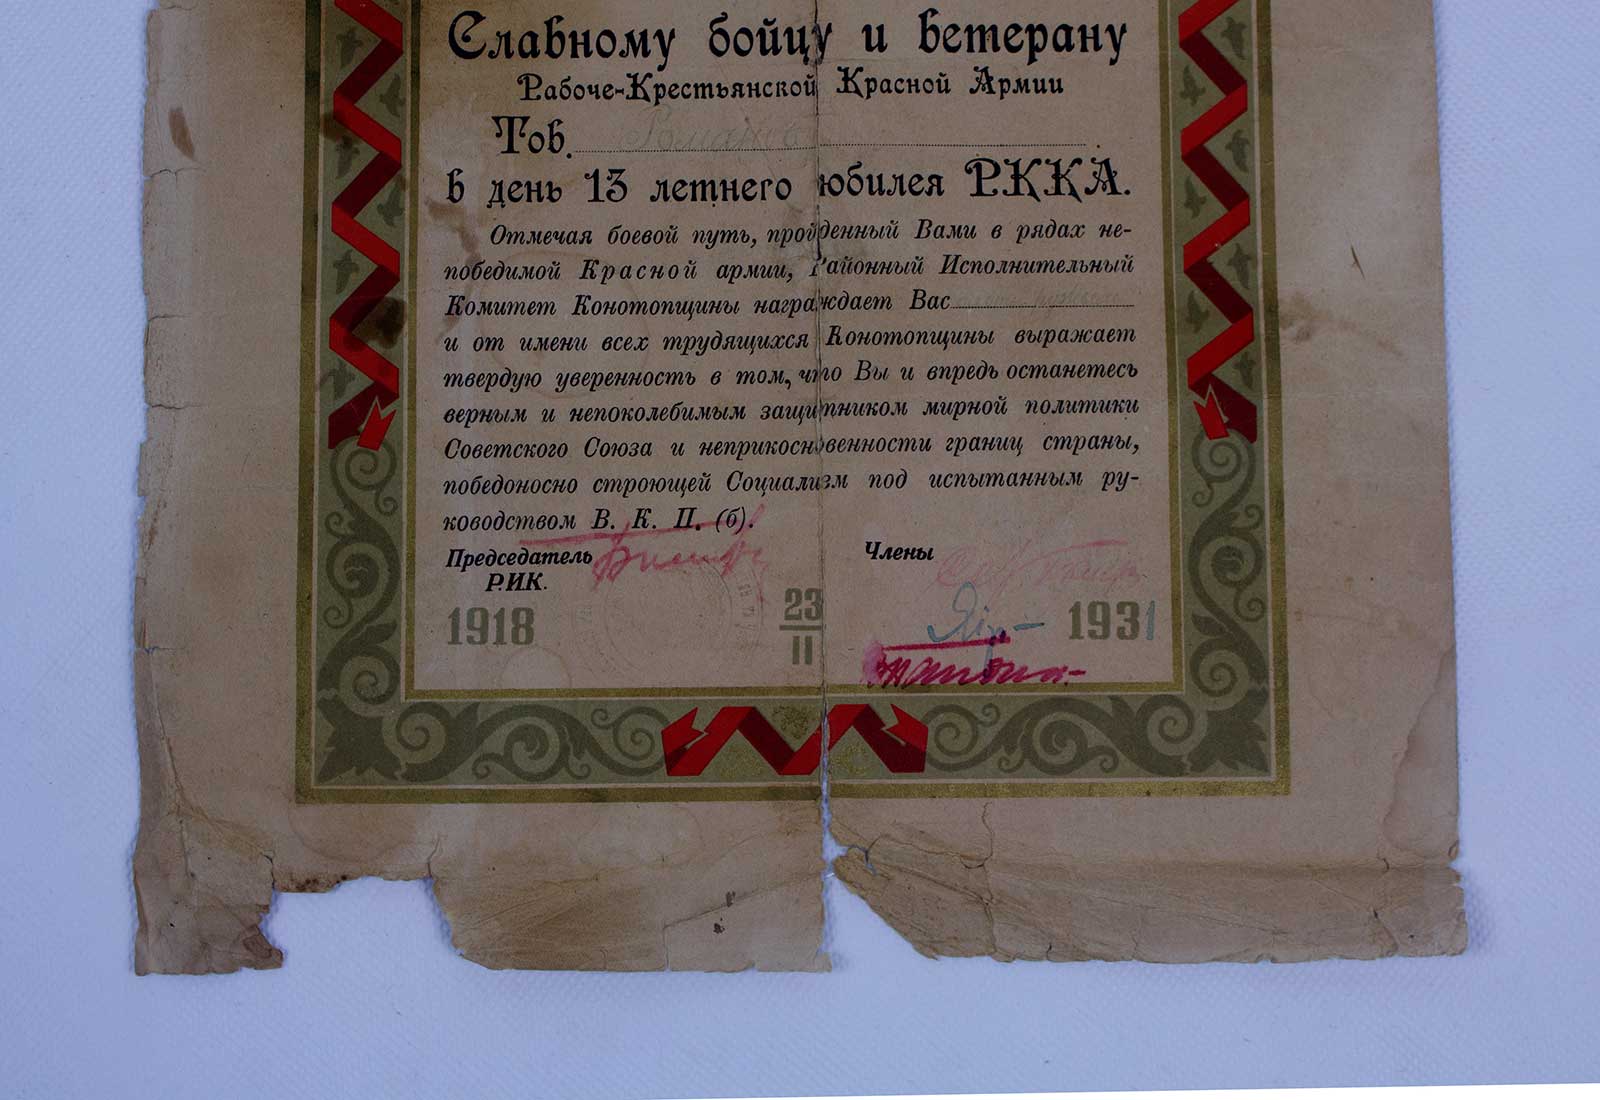 Славному бойцу и ветерану
Рабоче-Крестьянской Красной Армии
Тов.
в день 13 летнего юбилея Р.К.К.А.
Отмечая боевой путь, пройденный Вами в рядах не-
победимой Красной армии, Районный Исполнительный
Комитет Конотопщины награждает Вас
и от имени всех трудящихся Конотопщины выражает
твердую уверенность в том, что Вы и впредь останетесь
верным и непоколебимым защитником мирной политики
Советского Союза и неприкосновенности границ страны,
победоносно строющей Социализм под испытанным ру-
ководством В. К. П. (б).
Председатель Члены
Р.И.К.
1918 23 II 1931